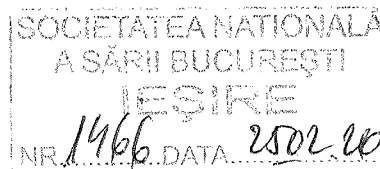 SOCIETATEA NAȚIONALĂ
A SĂRII BUCUREȘTI
IEȘIRE
NR. 1466 DATA 2502.20